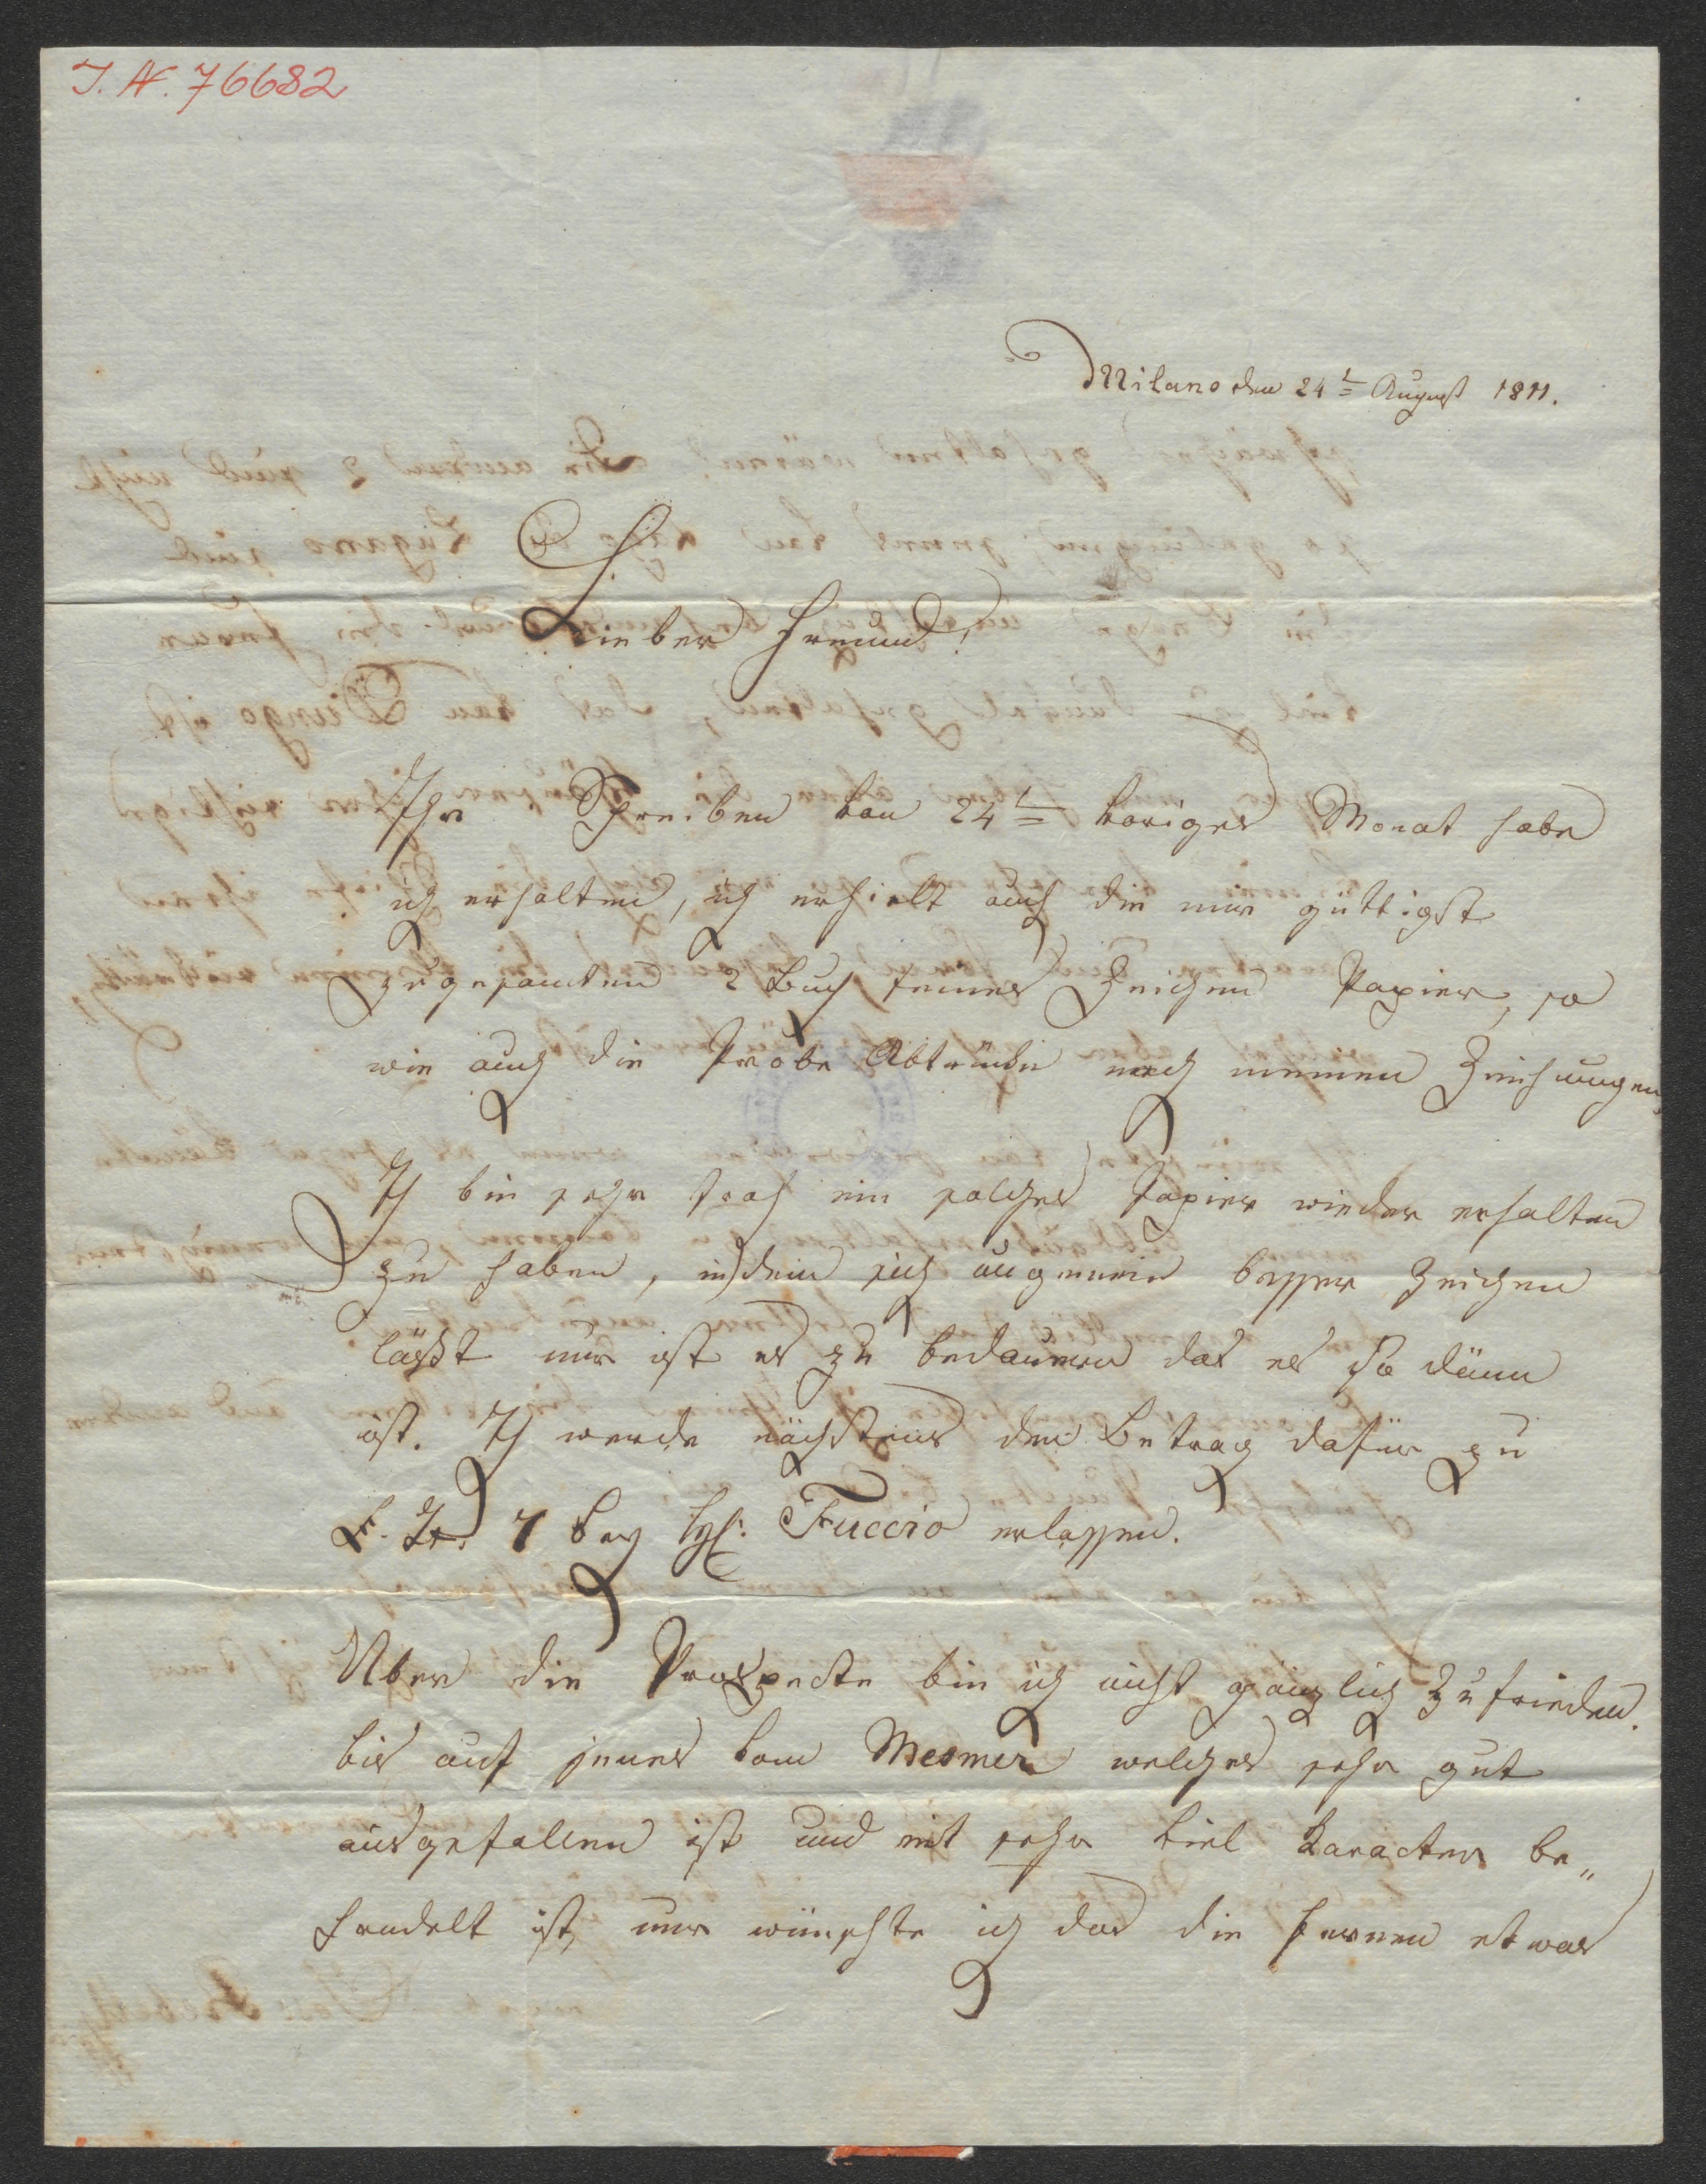 I. N. 76682
Milano den 24t August 1811.
Lieber Freund!
Ihr Schreiben von 24t voriges Monat habe
ich erhalten, ich erhielt auch die mir güttigst
zugesanten 2 Buch feines Zeichen Papier, so
wie auch die Probe Abtrüke nach meinen Zeichnungen,
Ich bin sehr froh ein solches Papier wieder erhalten
zu haben, indem sich ungemein besser Zeichen
läßt nur ist es zu bedauern das es so dünn
ist. Ich werde nächstens den Betrag dafür zu
7 bey Fuccio erlassen.
Uber die Prospecte bin ich nicht gänzlich zufrieden.
bis auf jenes vom Mesmer welches sehr gut
ausgefallen ist und mit sehr viel Karacter be„
handelt ist, nur wünschte ich das die Fernen etwas